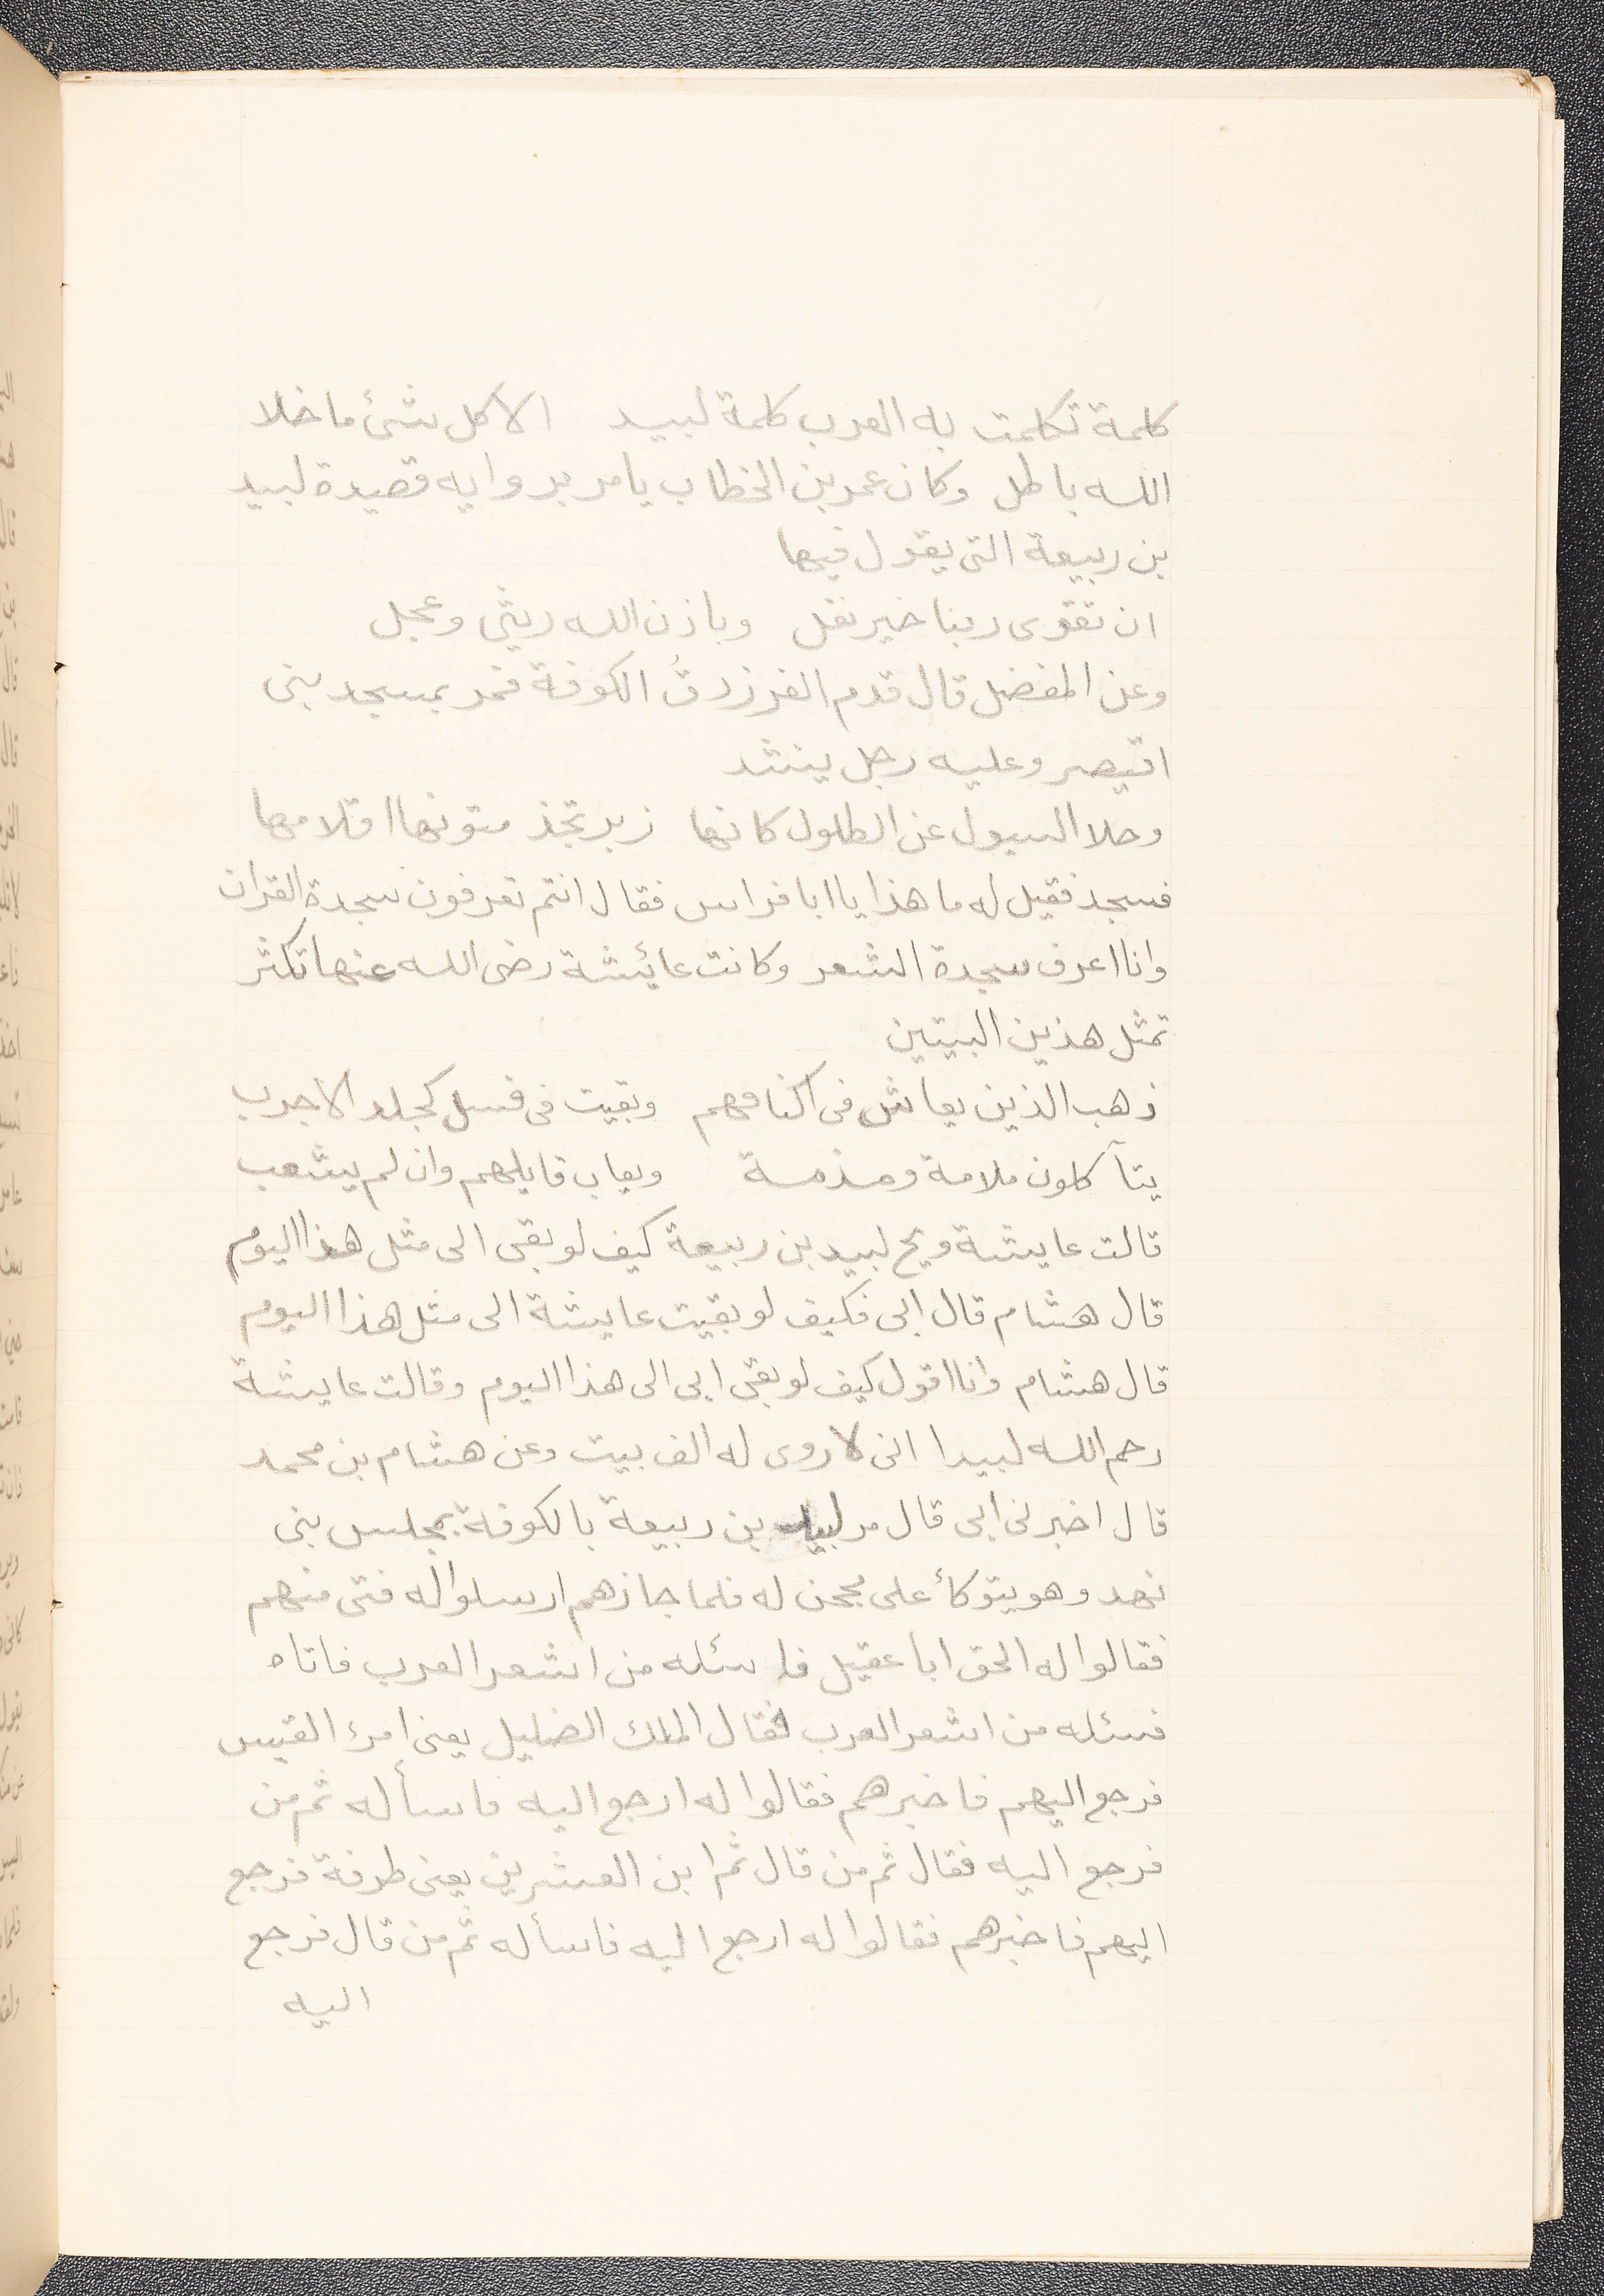 كلمة تكلمت به العرب كلمة لبيد الا كل شئ ما خلا
الله باطل وكان عمر بن الخطاب يامر بروايه قصيدة لبيد
بن ربيعة التى يقول فيها
ان تقوى ربنا خير نفل وباذن الله ريثى وعجل
وعن المفضل قال قدم الفرزدقُ الكوفة فمر بمسجد بنى
اقيصر وعليه رجل ينشد
وجلا السيول عن الطلول كانها زبر تجذ متونها اقلامها
فسجد فقيل له ما هذا يا ابا فراس فقال انتم تعرفون سجدة القران
وانا اعرف سجدة الشعر وكانت عائشة رضى الله عنها تكثر
تمثل هذين البيتين
ذهب الذين يعاش فى اكنافهم وبقيت فى فسل كجلد الاجرب
يتآكلون ملامة ومذمة ويعاب قايلهم وان لم يشعب
قالت عايشة ويح لبيد بن ربيعة كيف لو بقى الى مثل هذا اليوم
قال هشام قال ابى فكيف لو بقيت عايشة الى مثل هذا اليوم
قال هشام وانا اقول كيف لو بقى ابى الى هذا اليوم وقالت عايشة
رحم الله لبيدا انى لاروى له الف بيت وعن هشام بن محمد
قال اخبرنى ابى قال مر لبيد بن ربيعة بالكوفة بمجلس بنى
نهد وهو يتوكأ على محجن له فلما جازهم ارسلوا له فتى منهم
فقالوا له الحق ابا عقيل فاسئله من اشعر العرب فاتاه
فسئله من اشعر العرب فقال الملك الضليل يعنى امرء القيس
فرجع اليهم فاخبرهم فقالوا له ارجع اليه فاسأله ثم من
فرجع اليه فقال ثم من قال ثم ابن العشرين يعنى طرفة فرجع
اليهم فاخبرهم فقالوا له ارجع اليه فاسأله ثم من قال فرجع
اليه